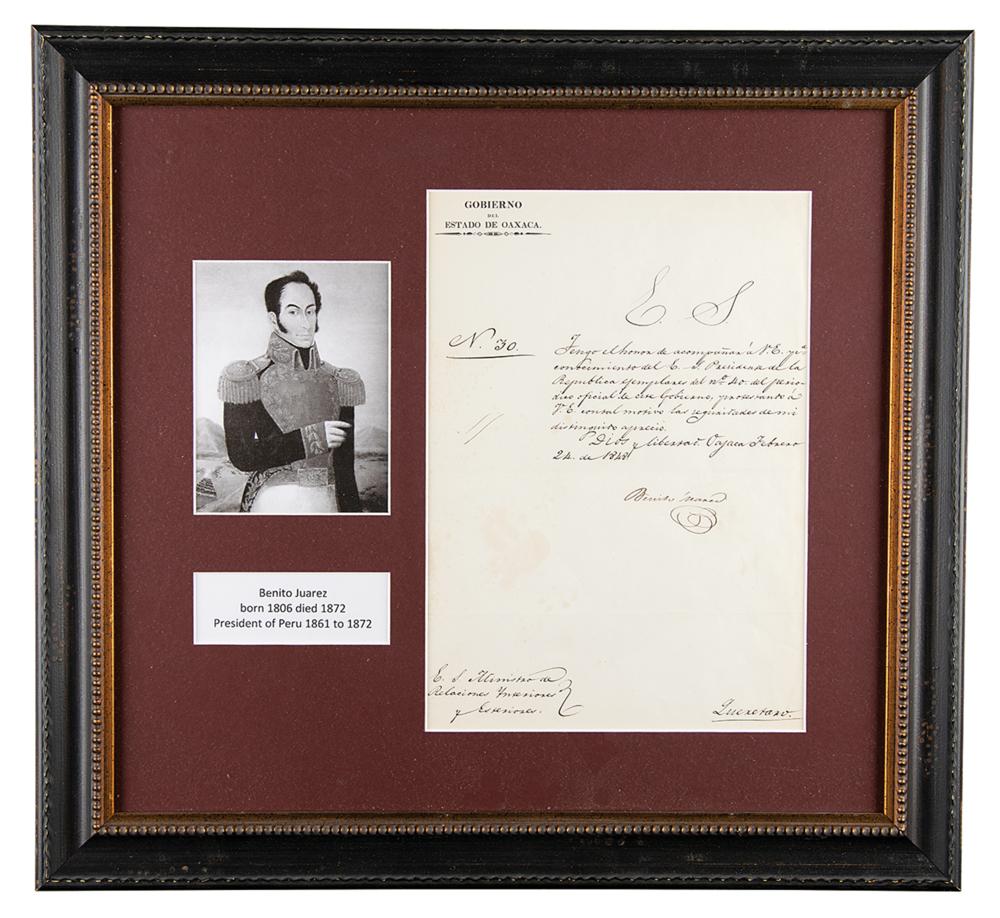 GOBIERNO
DEL
ESTADO DE OAXACA.
E. S.
N.º 30.
Tengo el honor de acompañar á V. E. pª
conocimiento del E. S. Presidente de la
Republica ejemplares del nº 40. del perio-
dico oficial de este Gobierno, protestando á
V. E. con tal motivo las seguridades de mi
distinguido aprecio.
Dios y libertad. Oajaca Febrero
24. de 1848
Benito Juarez
E. S. Ministro de
Relaciones Interiores
y Esteriores.
Queretaro.
Benito Juarez
born 1806 died 1872
President of Peru 1861 to 1872